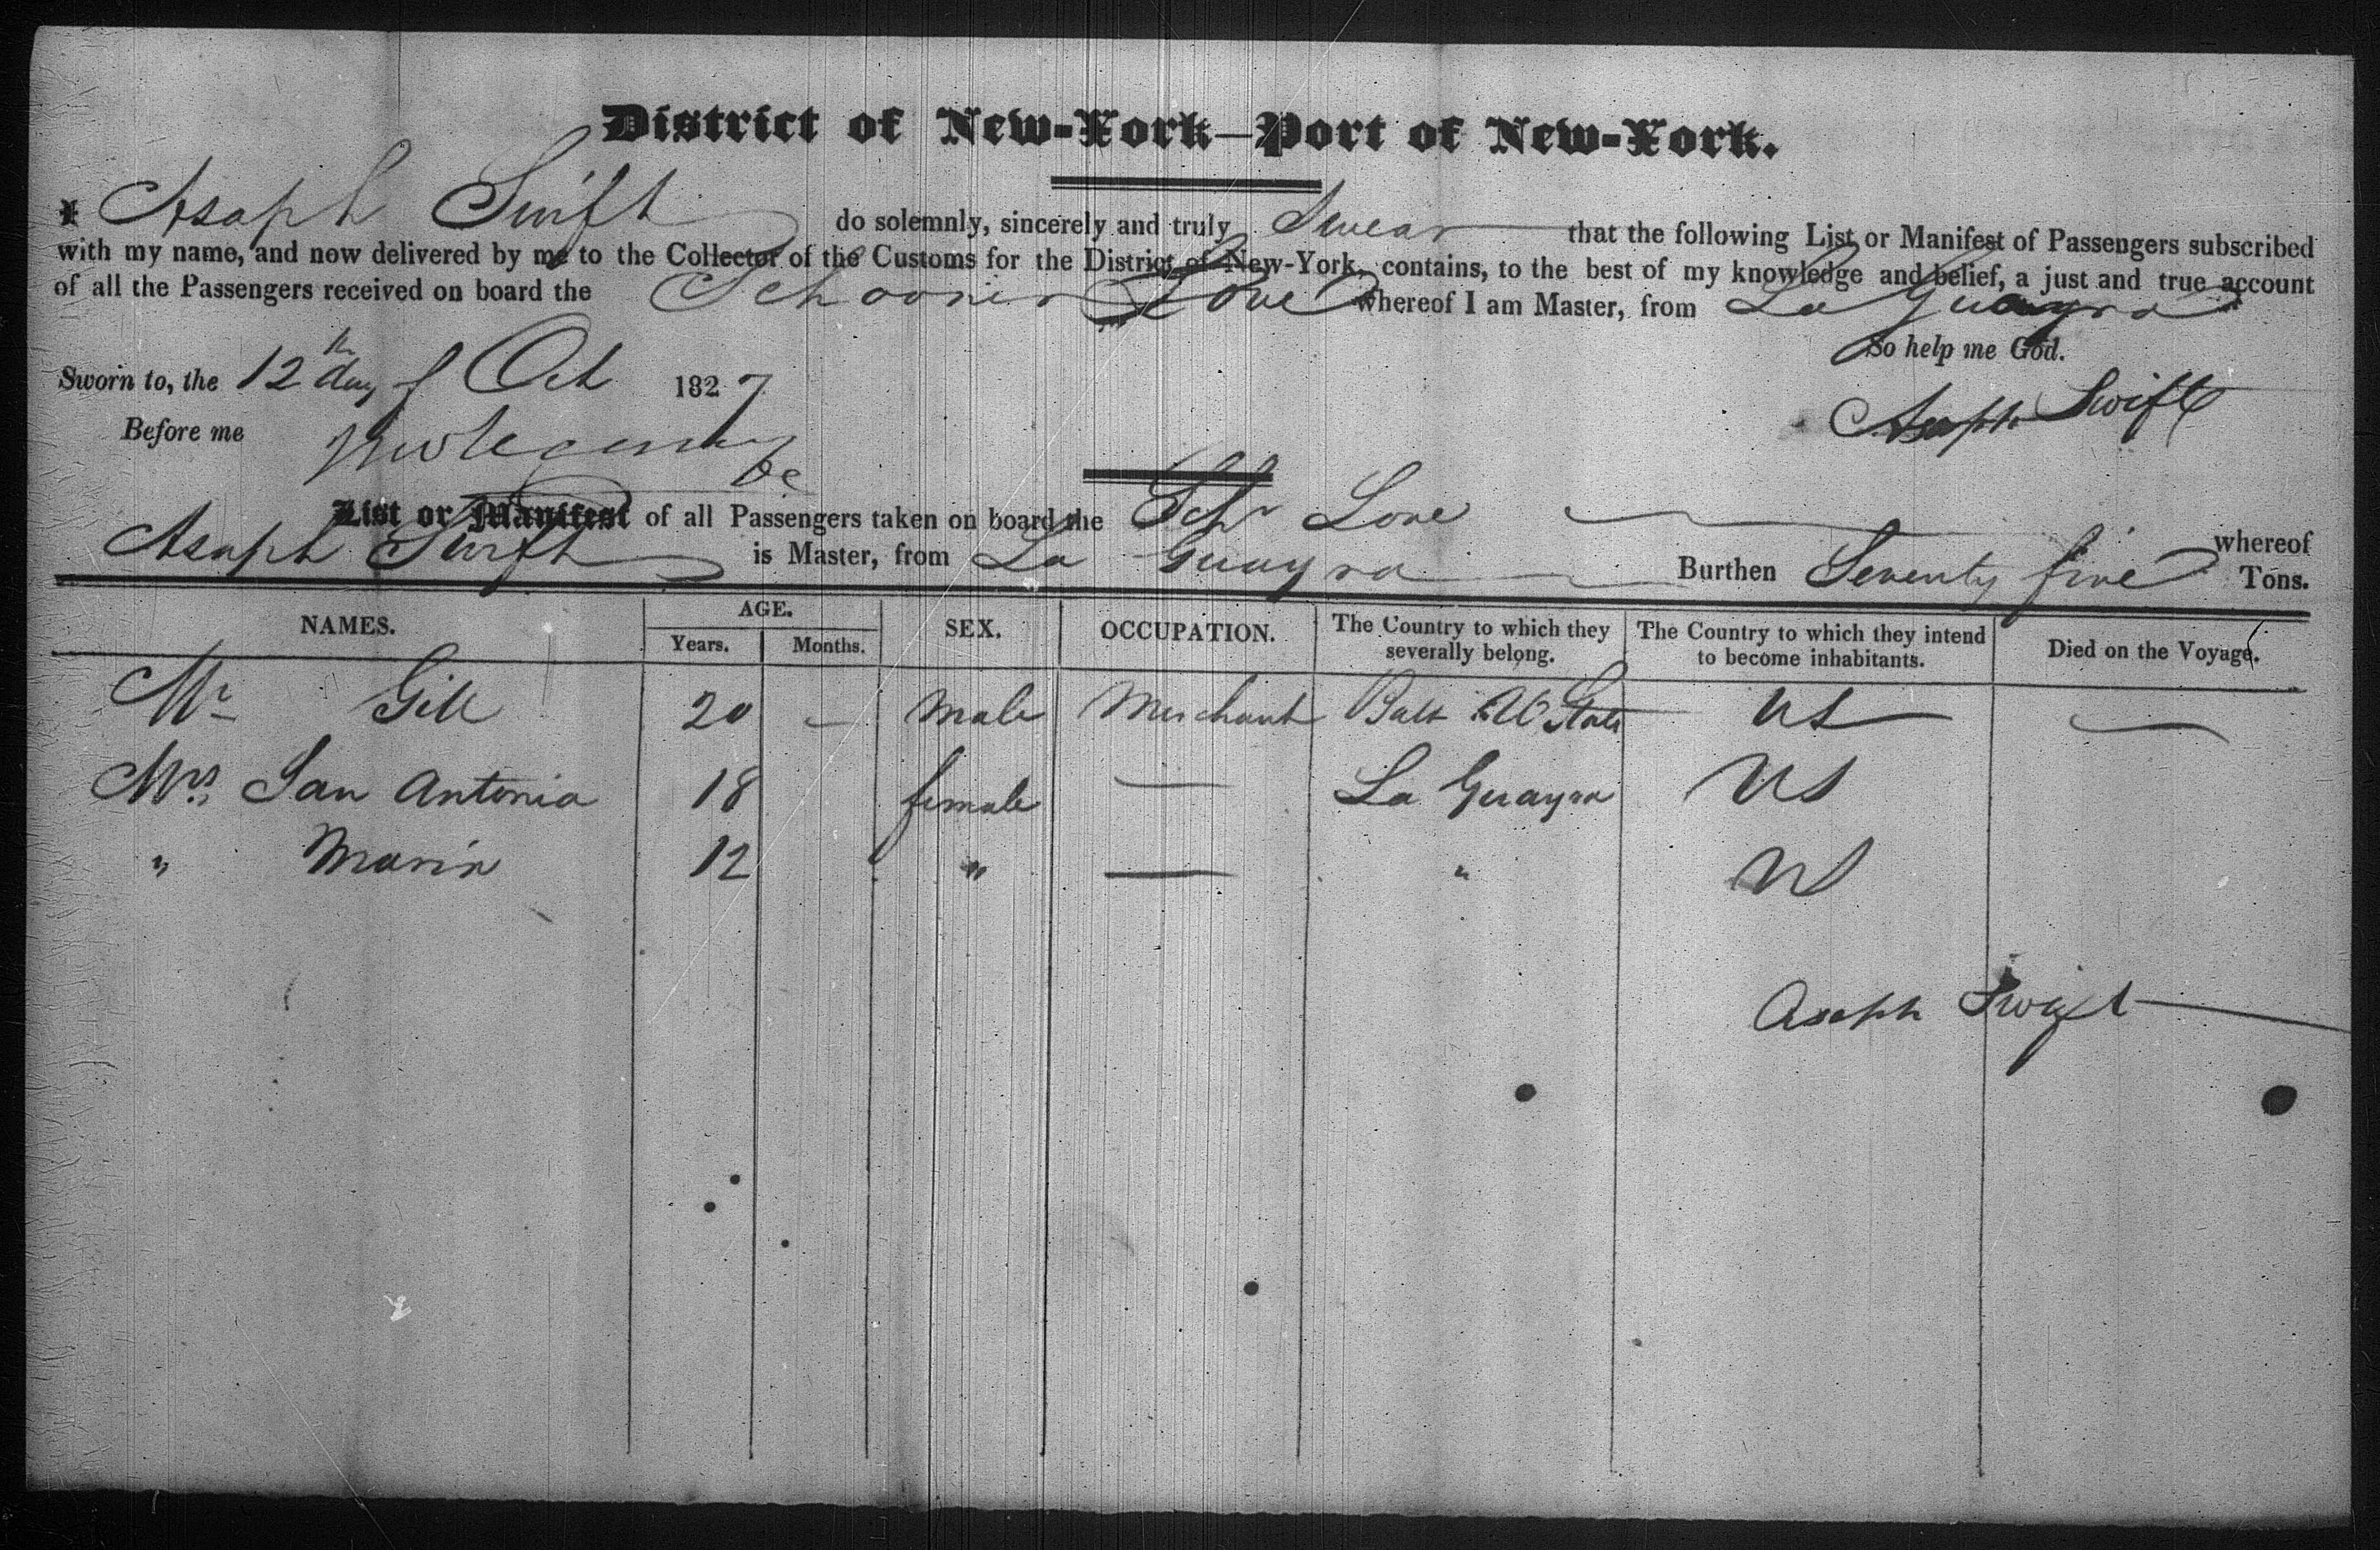 District of New-York—Port of New-York.
I Asaph Swift do solemnly, sincerely and truly Swear that the following List or Manifest of Passengers subscribed
with my name, and now delivered by me to the Collector of the Customs for the District of New-York, contains, to the best of my knowledge and belief, a just and true account
of all the Passengers received on board the Schooner Love whereof I am Master, from La Guayra
So help me God.
Sworn to, the 12th day of Oct 1827
Asaph Swift
Before me
List or Manifest of all Passengers taken on board the Schr Love whereof
Asaph Swift is Master, from La Guayra Burthen Seventy five Tons.
NAMES. AGE. SEX. OCCUPATION. The Country to which they severally belong. The Country to which they intend to become inhabitants. Died on the Voyage.
Years. Months.
Mr Gill 20 — male Merchant Balt U States US —
Mrs San Antonia 18 female — La Guayra US
" Maria 12 " — " US
Asaph Swift